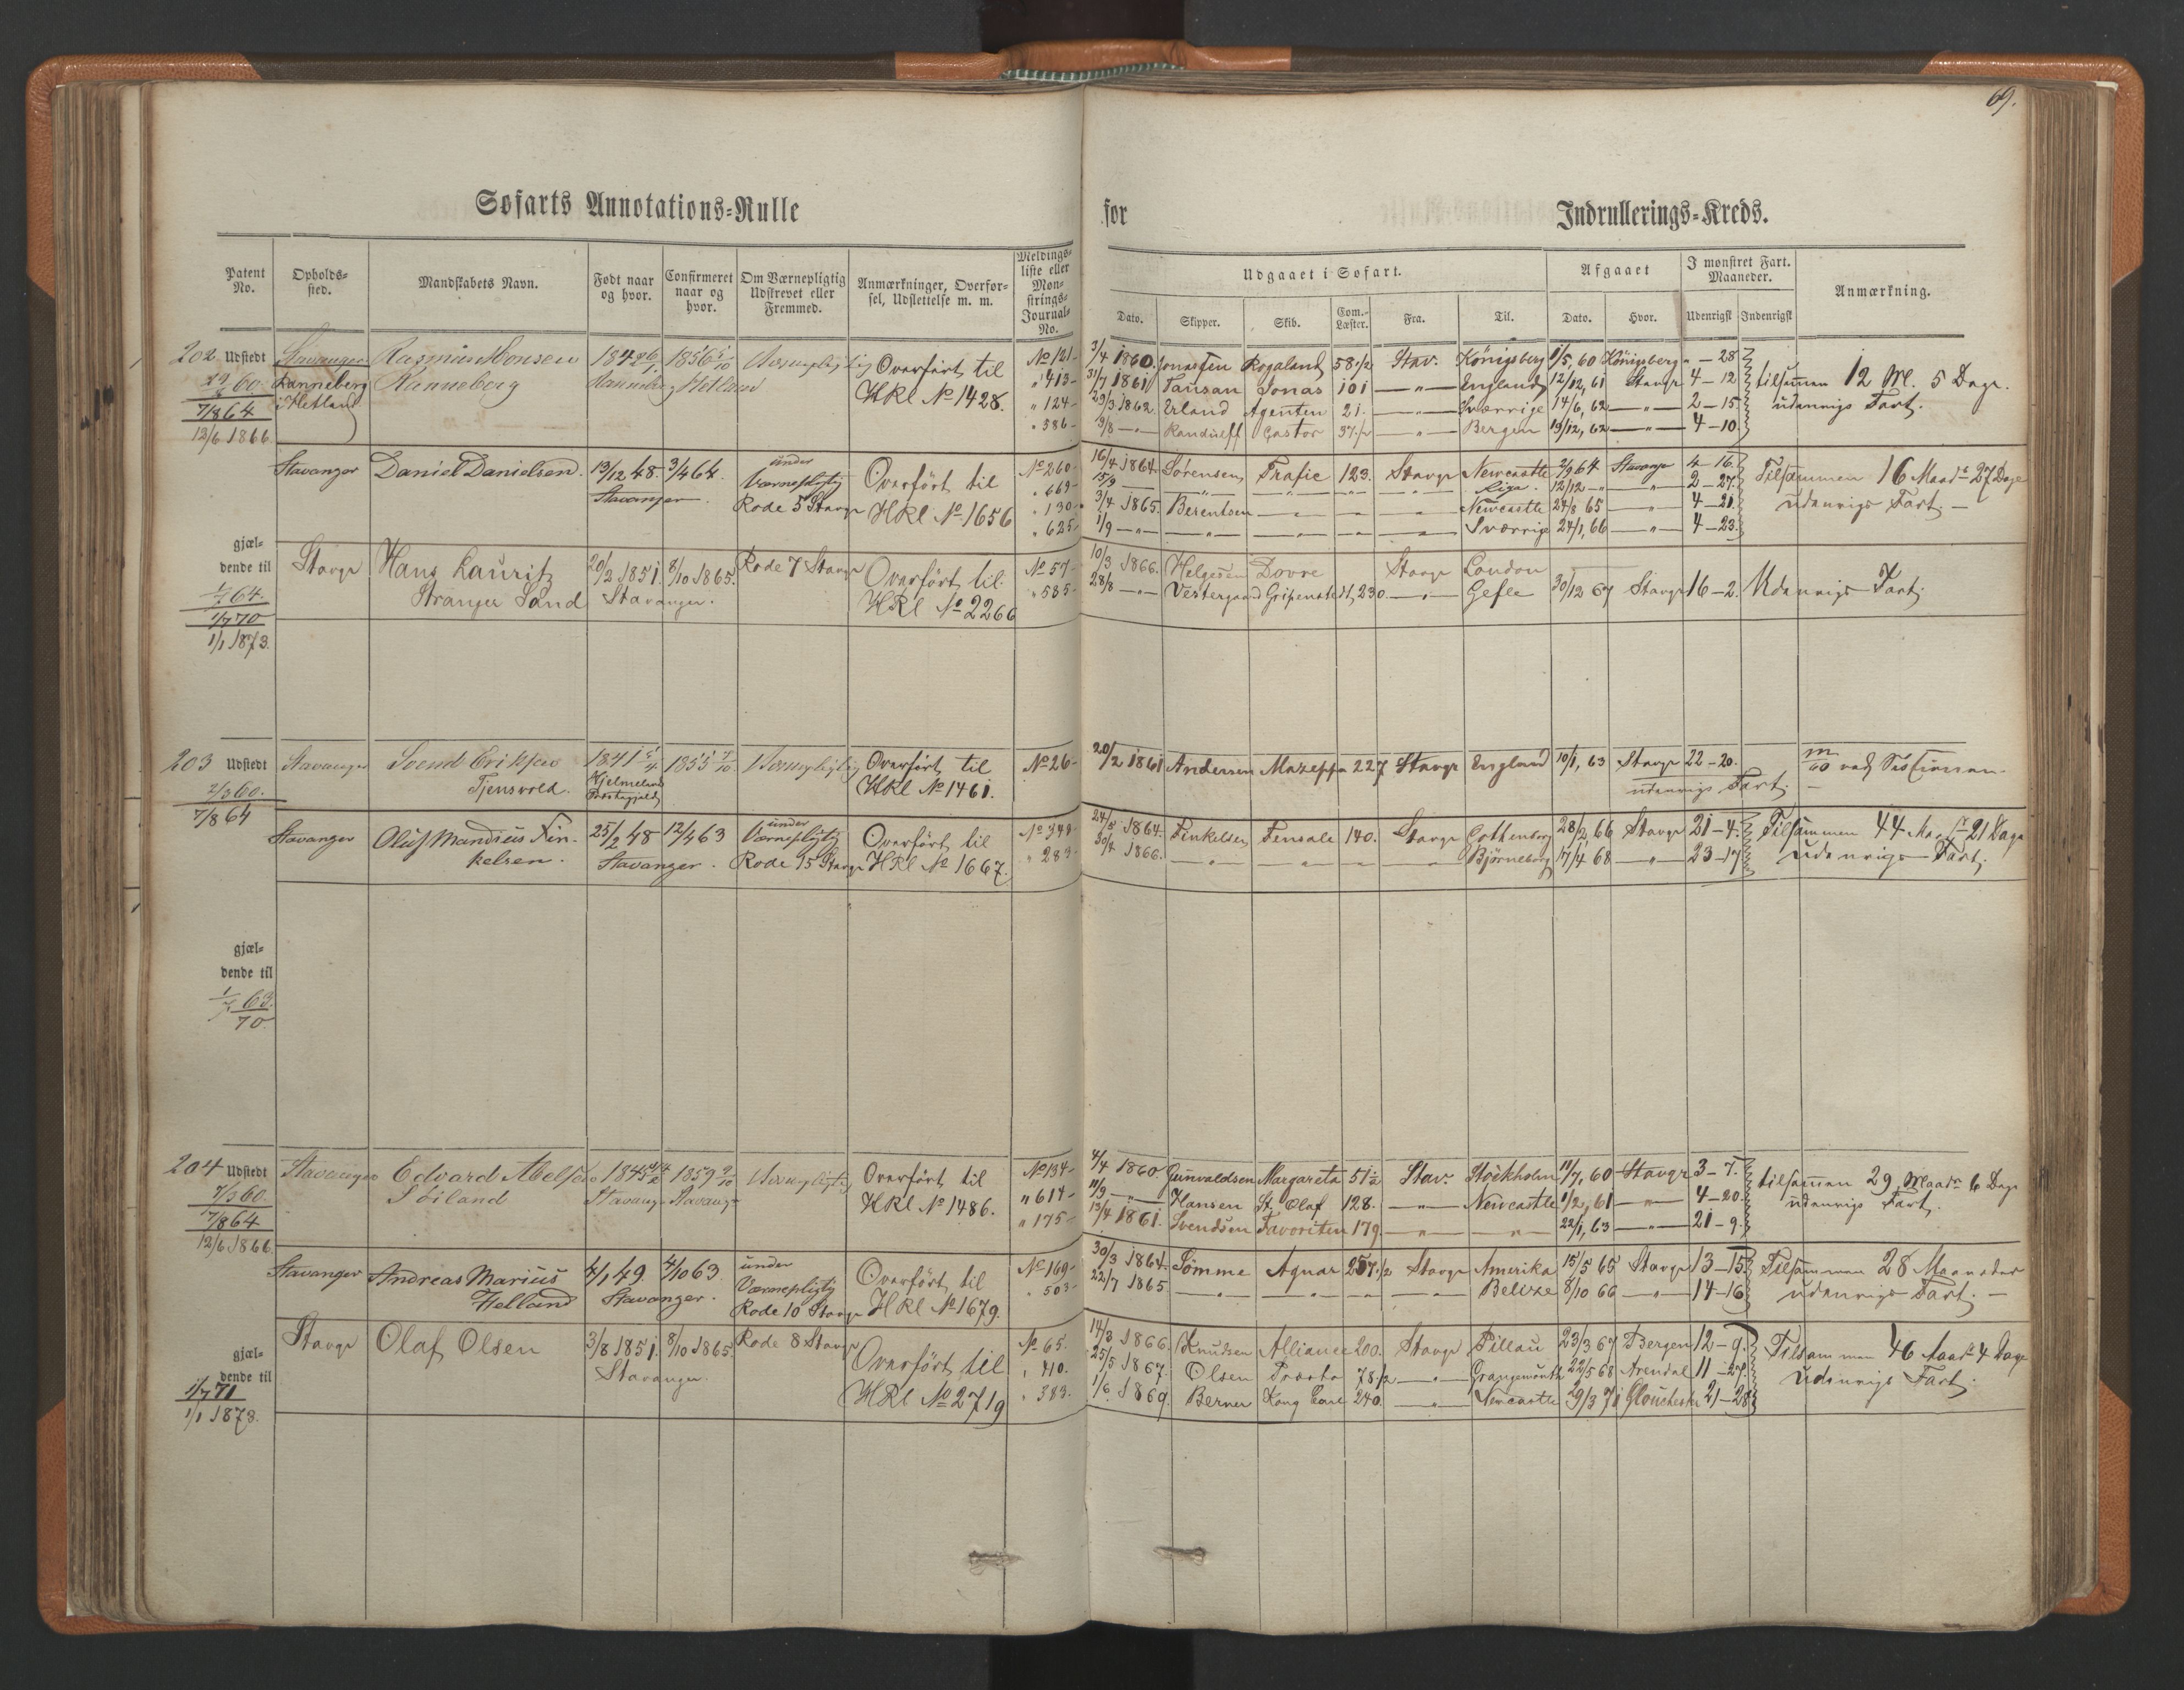 69.
Søfarts Annotations-Rulle for Indrullerings-Kreds.
Patent No. Opholds-sted. Mandskabets Navn. Født naar og hvor. Confirmeret naar og hvor. Om Værnepligtig Udskrevet eller Fremmed. Anmærkninger, Overførsel, Udslettelse m. m. Meldingsliste eller Mønstrings-Journal-No.
Udgaaet i Søfart. Afgaaet I mønstret Fart. Maaneder. Anmærkning.
Dato. Skipper. Skib. Com.-Læster. Fra. Til. Dato. Hvor. Udenrigsk Indenrigsk
202 Udstedt Stavanger Rasmus Monsen 1842 26/1 1856 5/10 Værnepligtig Overført til No 121 3/4 1860 Jonassen Rogaland 58 1/2 Stav. Königsberg 1/5, 60 Königsberg " - 28
60 Ranneberg Ranneberg Hetland HRl No 1428. " 413 31/7 1861 Jonas 101 — " — England 12/12, 61 Stavgr 4 - 12 tilsamen 12 M. 5 Dage
7/8 64 i Hetland " 124 29/3 1862 Erland Agenten 21. — " — Sverrige 14/6, 62 — " — 2 - 15 udenrigs Fart.
12/6 1866 " 586 3/8 — " — Randulff Castor 37 1/2 — " — Bergen 13/12, 62 — " — 4 - 10
Stavanger Daniel Danielsen. 13/12 48. 3/4 64. under Værnepligtig Overført til No 260 16/4 1864 Sørensen Trafic 123. Stavgr Newcastle 2/9 64 Stavgr 4 - 16. Tilsammen 16 Maadr 27 Dage
Stavanger. Rode 5 Stavgr HRl No 1656 " 669 15/9 — — " — Riga. 12/12 — " — " 2 - 27. udenrigs Fart. —
" 130 3/4 1865. Berentsen — " — Newcastle 24/8 65 — " — 4 - 21
" 625 1/9 — " — — " — Sverrige 24/1, 66 — " — 4 - 23
gjæl-
dende til Stavgr Hans Lauritz 20/2 1851. 8/10 1865. Rode 7 Stavgr Overført til No 57 10/3 1866. Helgesen Dovre Stavgr London
1/7 64. Stranger Sand Stavanger. HRl No 2266 " 585 28/8 — " — Vestergaard Gripenstedt, 230. — " — Gefle 30/12 67 Stavgr 16 - 2. Udenrigs Fart.
1/7 70
1/1 1873.
203 Udstedt Stavanger Svend Eriksen 1841 5/4 1855 7/10. Værnepligtig Overført til No 26 20/2 1861 Andersen Mazeppa 227 Stavgr England 10/1, 63 Stavgr 22 - 20.
2/3 60. Tjensvold. Hjelmeland Præstegjæld HRl No 1461. udenrigs Fart.
7/8 64
Stavanger Oluf Mandius Fin- 25/2 48 12/4 63 under Værnepligtig Overført til No 349 24/5 1864. Finkelsen Fensale 140. Stavgr Gottenborg 28/2, 66 Stavgr 21 - 4. Tilsammen 44 Maadr 21 Dage
kelsen. Stavanger. Rode 15 Stavgr HRl No 1667. " 283 30/4 1866. — " — Bjørneborg 17/4 68 — " — 23 - 17 udenrigs Fart.
gjæl-
dende til
1/7 63.
70
204 Udstedt Stavanger Edvard Abelsen 1845 1859 2/10 Værnepligtig Overført til No 134 4/4 1860. Gunvaldsen Margareta 51 1/2 Stav. Stockholm 11/7, 60 Stavgr 3 - 7. tilsamen 29 Maadr 6 Dage
7/3 60. Söiland Stavangr Stavangr HRl No 1486. " 614 11/9 — " — Hansen St. Olaf 128. — " — Newcastle 1/2, 61 — " — 4 - 20. udenrigs Fart.
7/8 64 " 175 13/4 1861. Svendsen Favoriten 179. — " — 22/1, 63 — " — 21 - 9.
12/6 1866.
Stavanger Andreas Marius 4/1 49. 4/10 63. under Værnepligtig Overført til No 169 30/3 1864. Sömme Agnar 257 1/2 Stavgr Amerika 15/5 65 Stavgr 13 - 15. Tilsammen 28 Maaneder
Helland Stavanger. Rode 10 Stavgr HRl No 1679. " 503 22/7 1865 — " — Belize 8/10 66 — " — 14 - 16 udenrigs Fart. —
Stavgr Olaf Olsen 3/8 1851. 8/10 1865. Rode 8 Stavgr Overført til No 65. 14/3 1866. Knudsen Alliance 200. Stavgr Pillau 23/3 67 Bergen 12 - 9. Tilsammen 46 Maadr 4 Dage
gjæl-
dende til Stavanger. HRl No 2719 " 410. 25/5 1867. Olsen Præsto 78 1/2 — " — Grangemouth 22/5 68 Arendal 11 - 27. Udenrigs Fart.
1/7 71 " 383. 1/6 1869. Berner Kong Carl 240. — " — Newcastle 29/3 71 Glouchester 21 - 28
1/1 1873.